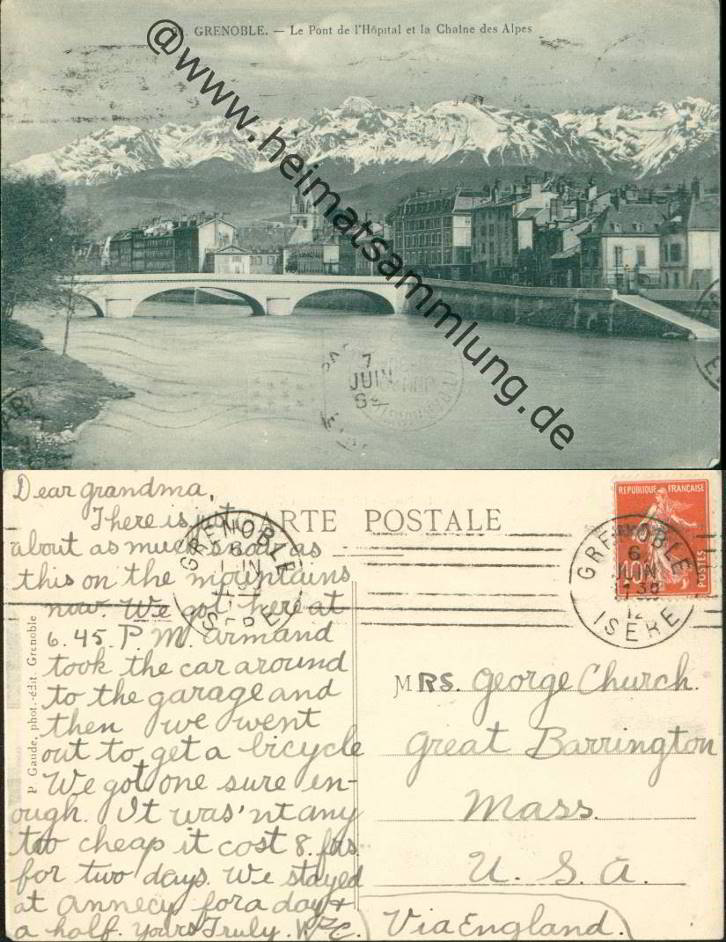 GRENOBLE. — Le Pont de l'Hôpital et la Chaîne des Alpes
@www.heimatsammlung.de
7
JUIN
Dear grandma,
There is not
about as much snow as
this on the mountains
now. We got here at
6.45. P. M. Armand
took the car around
to the garage and
then we went
out to get a bicycle
We got one sure en-
ough. It was'nt any
too cheap it cost 8. frs.
for two days. We stayed
at Annecy for a day +
a half. Yours Truly.
CARTE POSTALE
GRENOBLE
ISERE
REPUBLIQUE FRANÇAISE
10
GRENOBLE
6
12
ISERE
P. Gaude, phot.-édit. Grenoble
MRS. George Church.
Great Barrington
Mass.
U. S. A.
Via England.